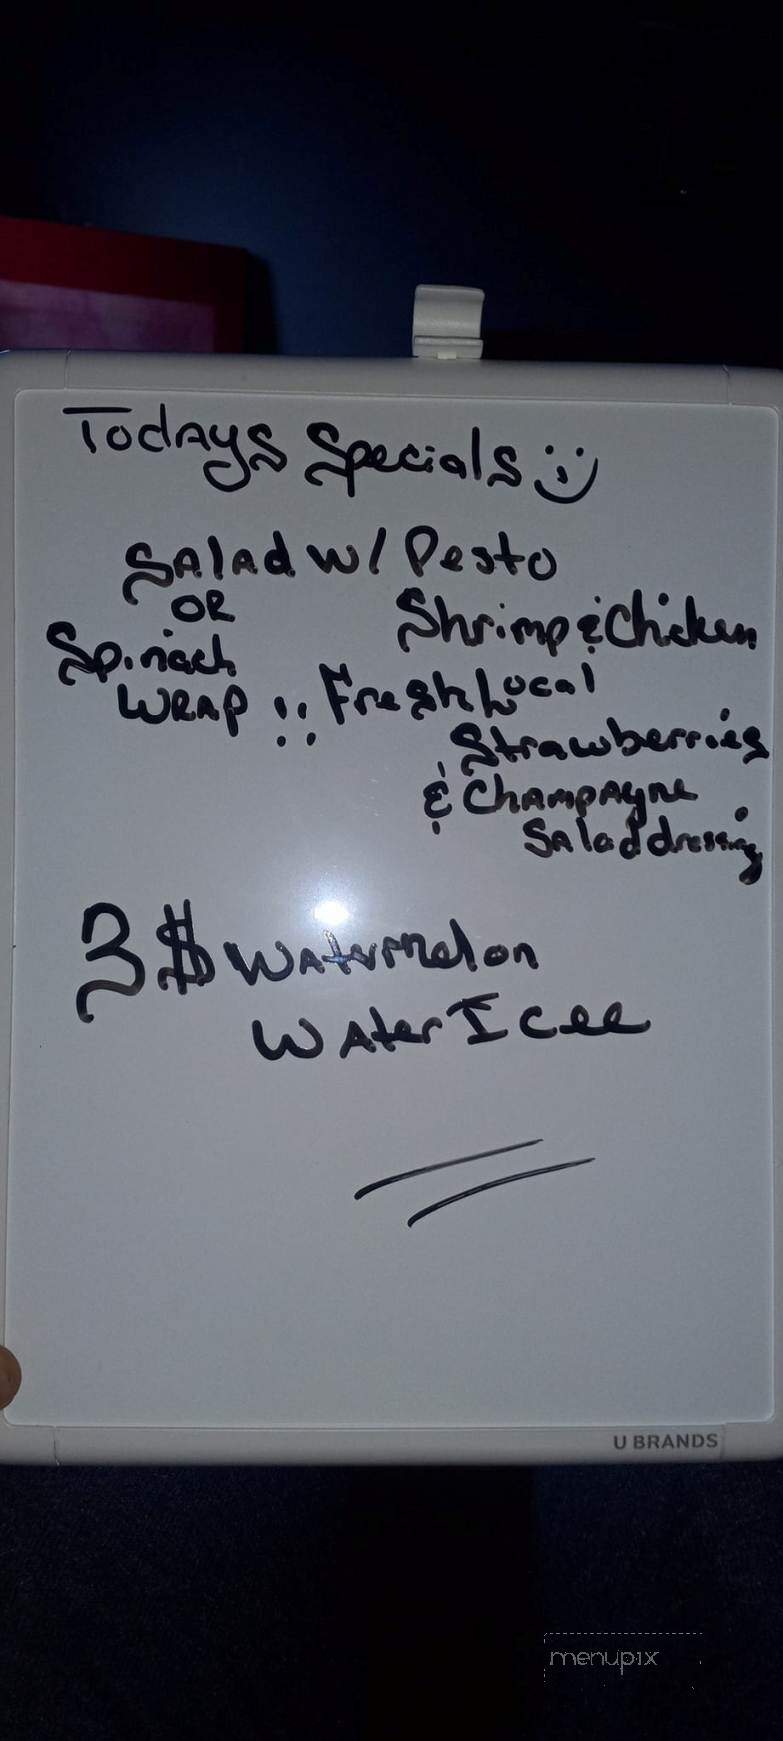 Todays Specials
Salad w/ Pesto
OR Shrimp & Chicken
Spinach
WRAP !! Fresh Local
Strawberries
& Champagne
Salad dressing
3 $ Watermelon
Water Icee
U BRANDS
menupix